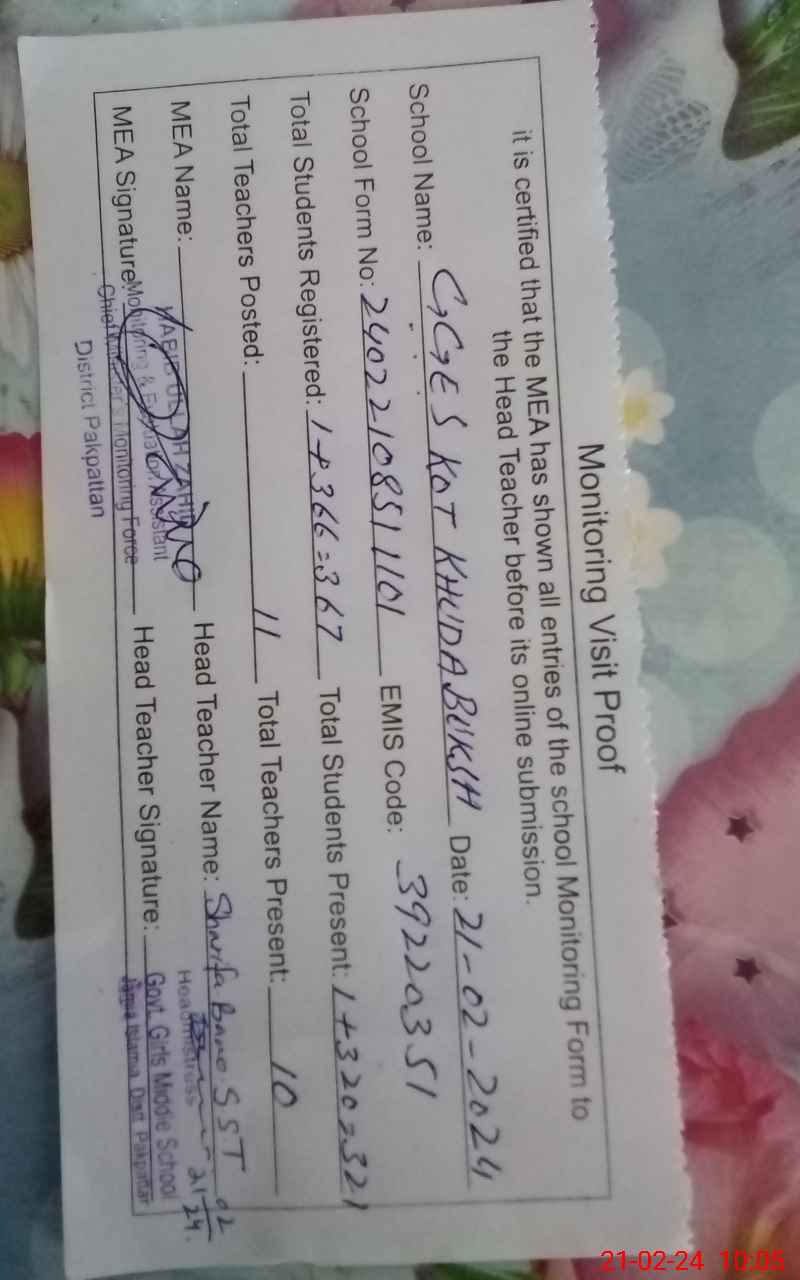 Monitoring Visit Proof
it is certified that the MEA has shown all entries of the school Monitoring Form to
the Head Teacher before its online submission.
School Name: GGES KOT KHUDA BUKSH Date: 21-02-2024
School Form No: 24022108511101 EMIS Code: 39220351
Total Students Registered: 1+366=367 Total Students Present: 1+320=321
Total Teachers Posted: 11 Total Teachers Present: 10
MEA Name: HABIB ULLAH ZAHID Head Teacher Name: Sharifa Bano SST
MEA Signature: Head Teacher Signature:
Monitoring & Evaluation Assistant
Chief Minister's Monitoring Force
District Pakpattan
Headmistress
Govt. Girls Middle School
Distt Pakpattan
21/02/24.
21-02-24 10:05